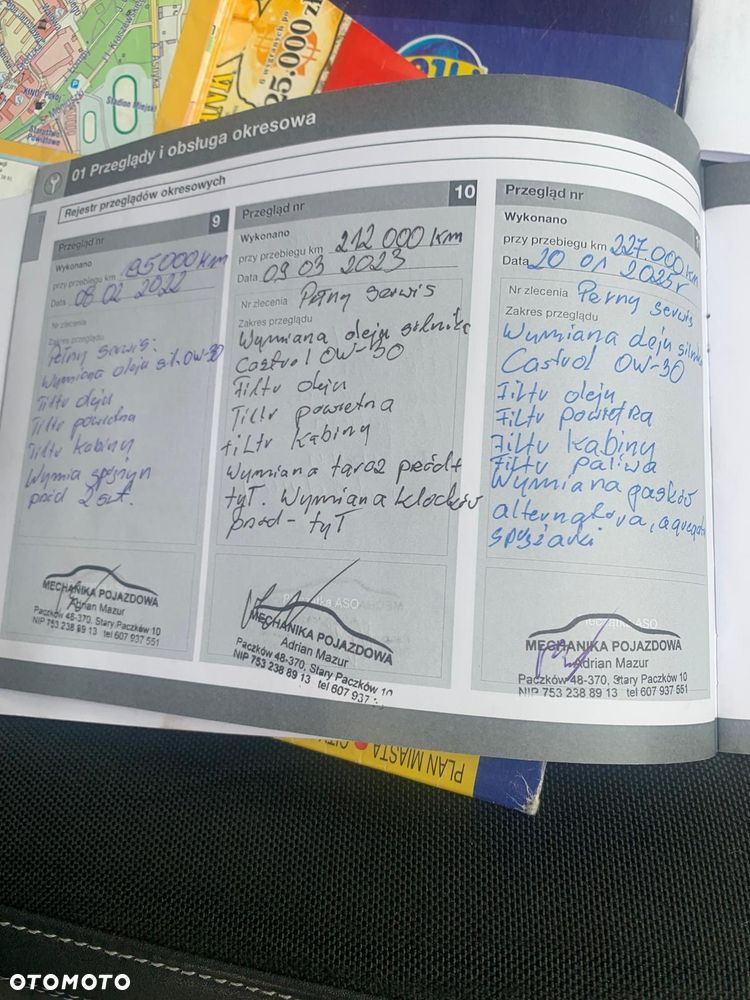 Kaszubska
KINO Pokój
Stadion Miejski
Starostwo
Powiatowe
6 wygranych po
25.000 zł
01 Przeglądy i obsługa okresowa
Rejestr przeglądów okresowych
9
Przegląd nr
Wykonano
przy przebiegu km 195000 km
Data 08 02 2022
Nr zlecenia
Zakres przeglądu
Pełny serwis.
Wymiana oleju sil. 0W-30
Filtr oleju
Filtr powietrza
Filtr kabiny
Wymia sprężyn
przód 2 szt.
MECHANIKA POJAZDOWA
Adrian Mazur
Paczków 48-370, Stary Paczków 10
NIP 753 238 89 13 tel 607 937 551
10
Przegląd nr
Wykonano
przy przebiegu km 212 000 km
Data 09 03 2023
Nr zlecenia Pełny serwis
Zakres przeglądu
Wymiana oleju silnika
Castrol 0W-30
Filtr oleju
Filtr powietrza
Filtr kabiny
Wymiana tarcz przód+
tył. Wymiana klocków
przód - tył
Pieczątka ASO
MECHANIKA POJAZDOWA
Adrian Mazur
Paczków 48-370, Stary Paczków 10
NIP 753 238 89 13 tel 607 937
Przegląd nr
Wykonano
przy przebiegu km 227.000 km
Data 20 01 2025r
Nr zlecenia Pełny serwis
Zakres przeglądu
Wymiana oleju silnika
Castrol 0W-30
Filtr oleju
Filtr powietrza
Filtr kabiny
Filtr paliwa
Wymiana pasków
alternatora, agregatu
sprężarki
Pieczątka ASO
MECHANIKA POJAZDOWA
Adrian Mazur
Paczków 48-370, Stary Paczków 10
NIP 753 238 89 13 tel 607 937 551
PLAN MIASTA CITY
OTOMOTO